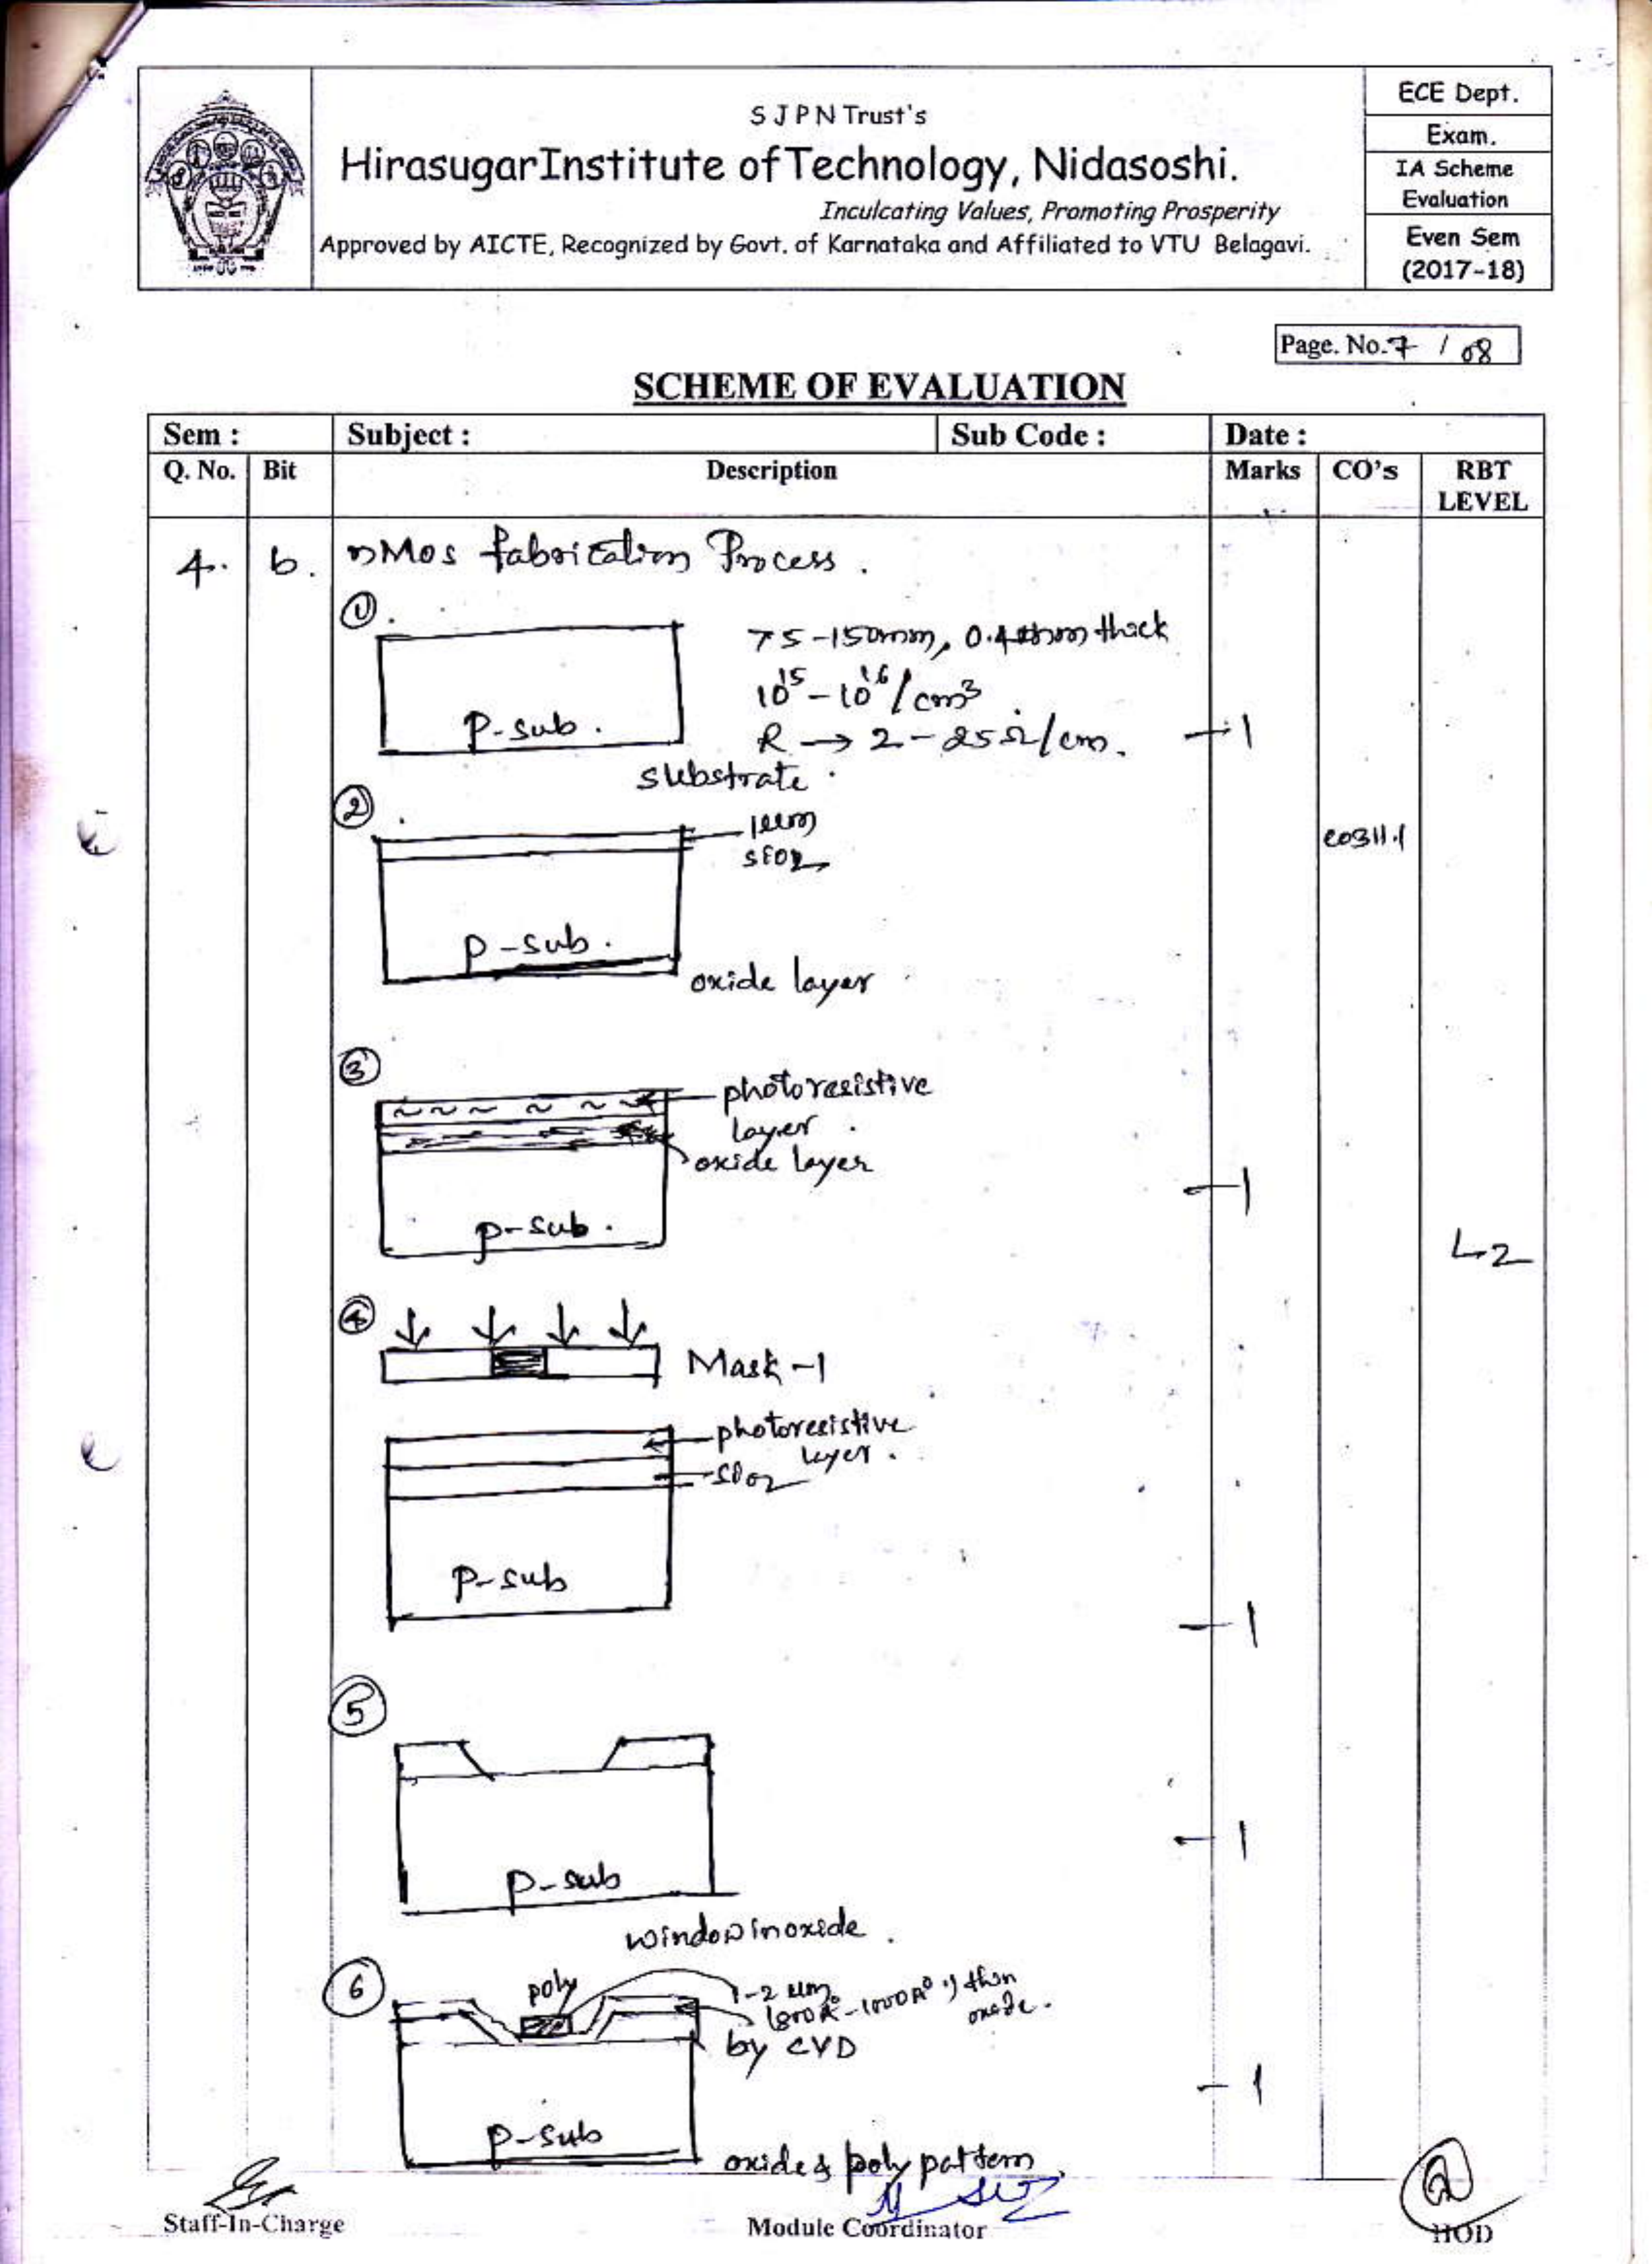 S J P N Trust's
HirasugarInstitute of Technology, Nidasoshi.
Inculcating Values, Promoting Prosperity
Approved by AICTE, Recognized by Govt. of Karnataka and Affiliated to VTU Belagavi.
ECE Dept.
Exam.
IA Scheme
Evaluation
Even Sem
(2017-18)
Page. No. 7 / 08
SCHEME OF EVALUATION
Sem : Subject : Sub Code : Date :
Q. No. Bit Description Marks CO's RBT
LEVEL
4. b. nMos fabrication Process.
1.
75-150mm, 0.4 thick
10^15 - 10^16 / cm^3
P-sub. R → 2 - 25 Ω/cm. - 1
substrate.
2.
1um
SiO2
CO311.1
p-sub.
oxide layer
3
photoresistive
layer.
oxide layer
- 1
p-sub.
L2
4
Mask-1
photoresistive
layer.
SiO2
p-sub
- 1
5
- 1
p-sub
window in oxide.
6 poly
1-2 um
800A° - 1000A° thin
oxide.
by CVD
- 1
p-sub
oxide & poly pattern.
Staff-In-Charge Module Coordinator HOD